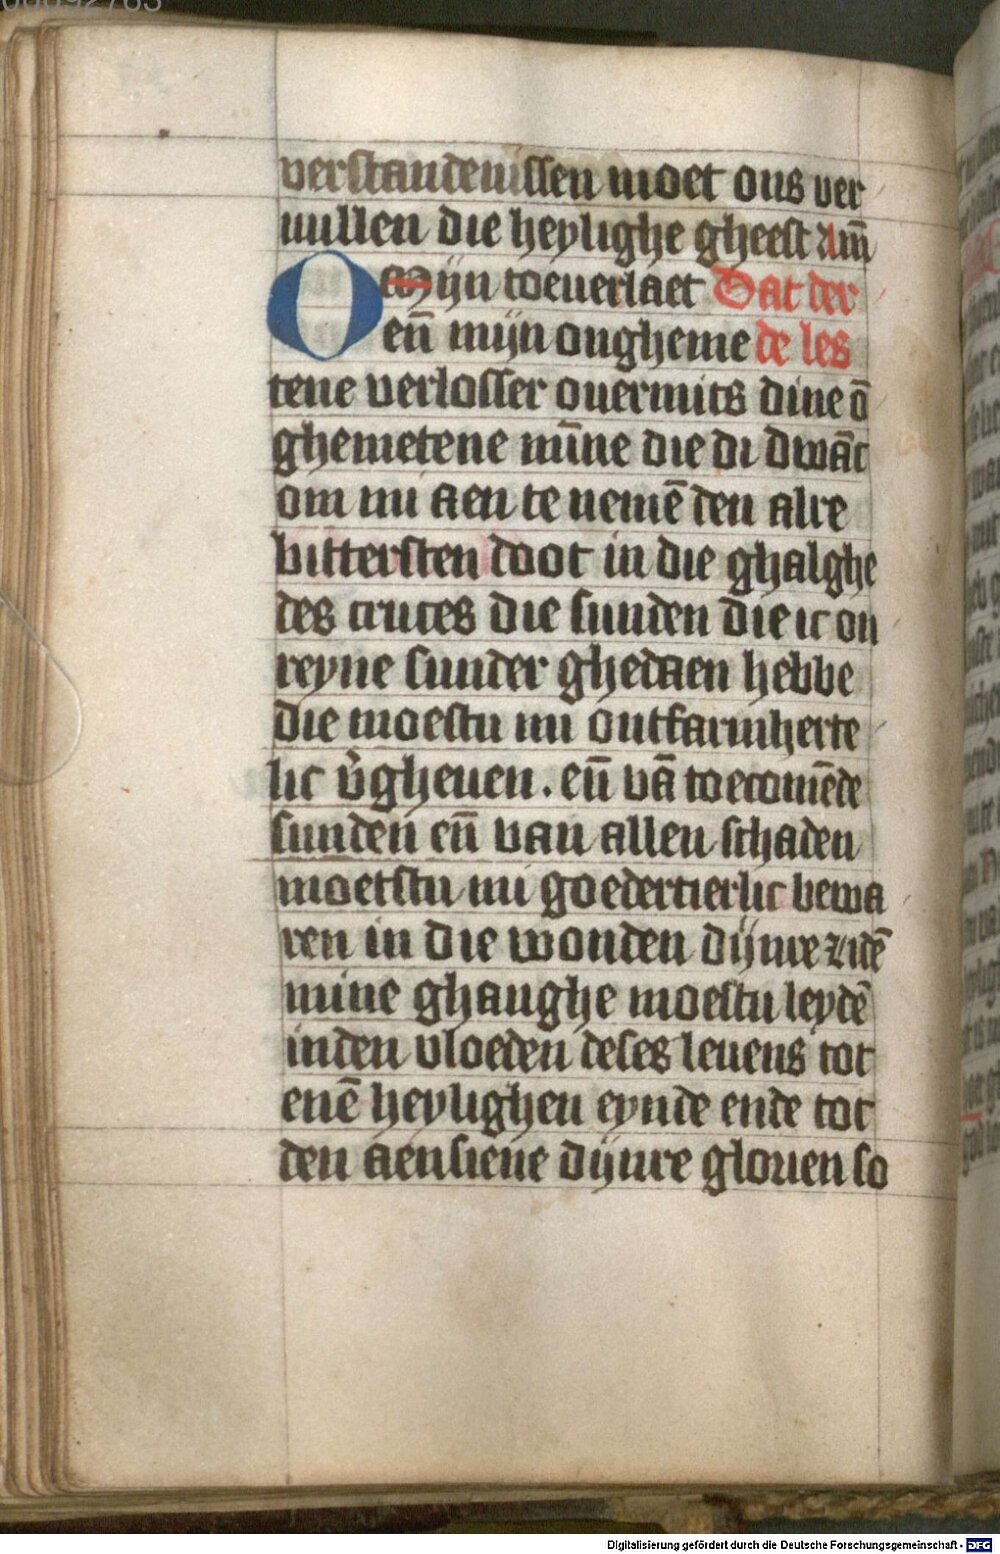 00092763
verstandenissen moet ons ver
uullen die heylighe gheest Am̄
O Mijn toeuerlaet Dat der
en̄ mijn ongheme de les
tene verlosser ouermits dine ō
ghemetene mīne die di dwāc
om mi aen te nemē den alre
bittersten doot in die ghalghe
des cruces die sunden die ic on
reyne sunder ghedaen hebbe
die moestu mi ontfarmherte
lic v̄gheuen . en̄ vā toecomēde
sunden en̄ van allen schaden
moetstu mi goedertierlic bewa
ren in die wonden dijnre zidē
mine ghanghe moestu leydē
inden vloeden deses leuens tot
enē heylighen eynde ende tot
den aensiene dijnre glorien so
Digitalisierung gefördert durch die Deutsche Forschungsgemeinschaft - DFG